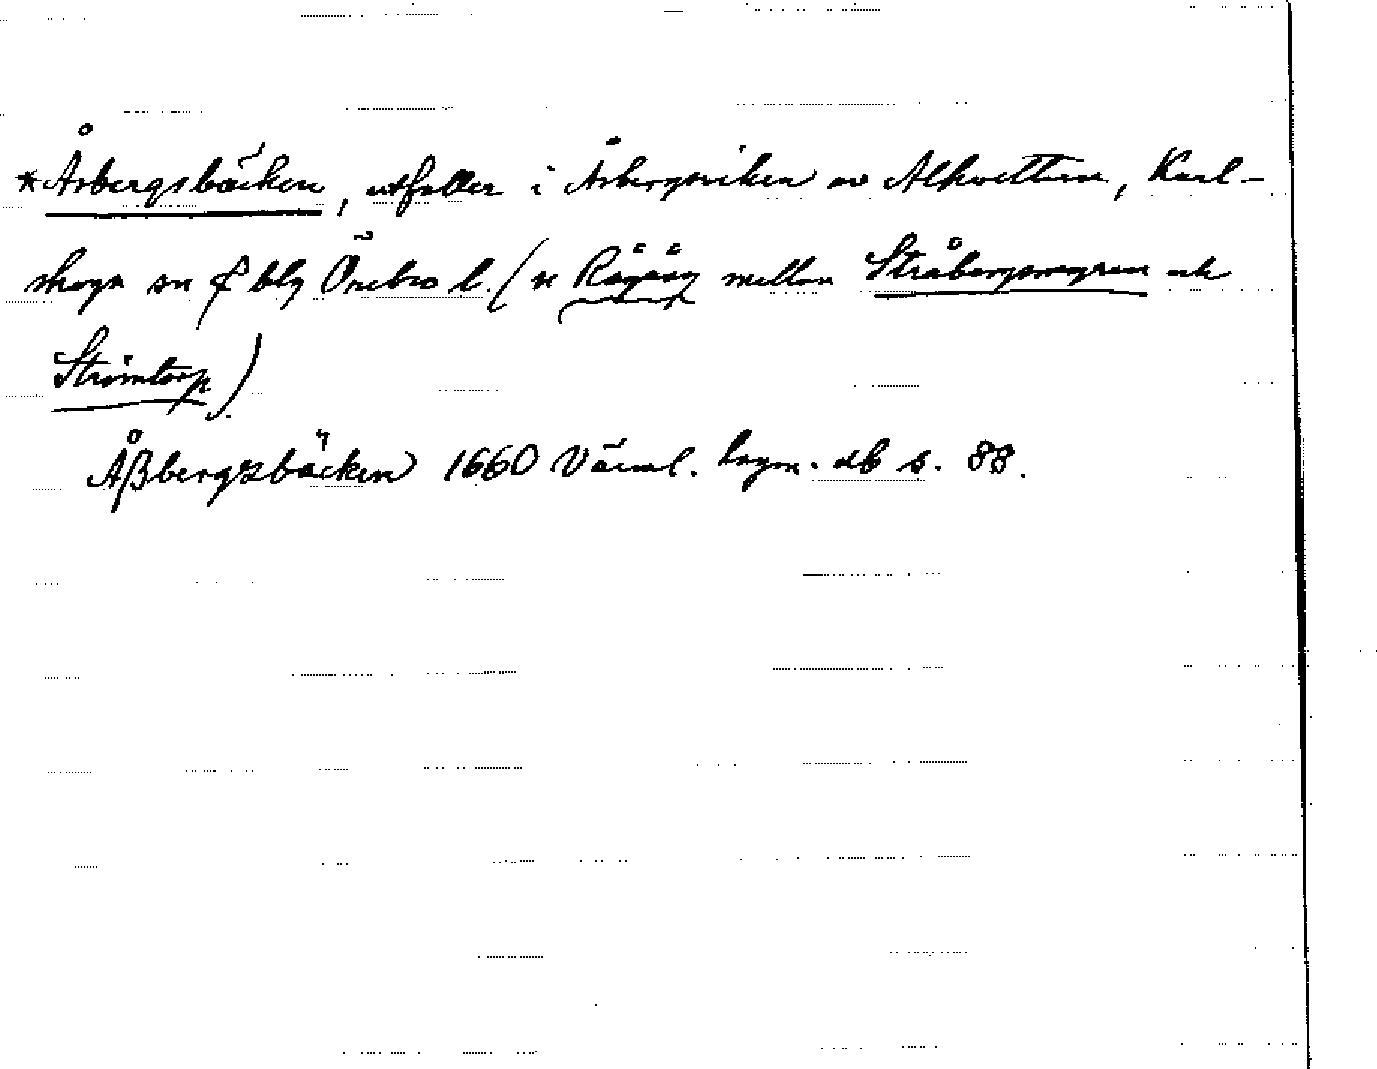 *Åsbergsbäcken, utfaller i Åsbergsviken av Alkvettern, Karl-
skoga sn f blg Örebro l. (x Rågång mellan Stråbergsmyren och
Strömtorp).
Åßbergzbäcken 1660 Värml. hgm. db s. 88.